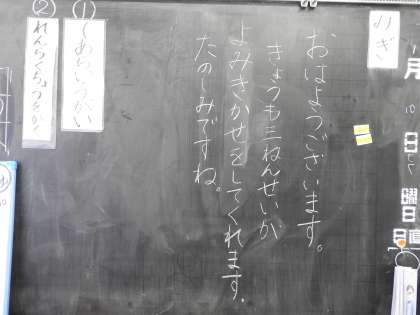 月
10
日
曜日
日直
おはようございます。
きょうも三ねんせいが
よみきかせをしてくれます。
たのしみですね。
(1)
(2)
れんらくちょうをかく